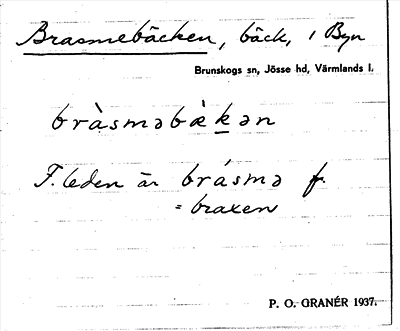 Brasmebäcken, bäck, i Byn
Brunskogs sn, Jösse hd, Värmlands l.
bràsməbæ̀kən
F. leden är brásmə f.
= braxen
P. O. GRANÉR 1937.